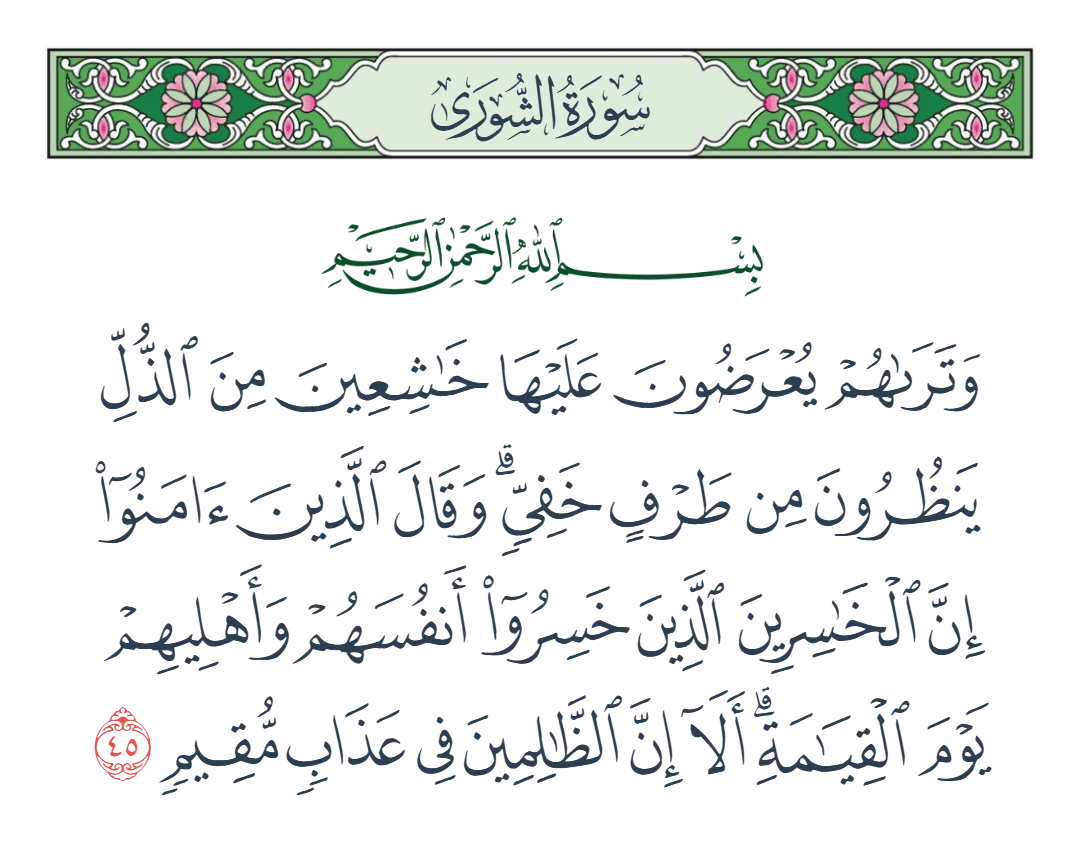 سُورَةُ الشُّورَىٰ
بِسْمِ ٱللَّهِ ٱلرَّحْمَٰنِ ٱلرَّحِيمِ
وَتَرَىٰهُمْ يُعْرَضُونَ عَلَيْهَا خَٰشِعِينَ مِنَ ٱلذُّلِّ
يَنظُرُونَ مِن طَرْفٍ خَفِيٍّۗ وَقَالَ ٱلَّذِينَ ءَامَنُوٓا۟
إِنَّ ٱلْخَٰسِرِينَ ٱلَّذِينَ خَسِرُوٓا۟ أَنفُسَهُمْ وَأَهْلِيهِمْ
يَوْمَ ٱلْقِيَٰمَةِۗ أَلَآ إِنَّ ٱلظَّٰلِمِينَ فِى عَذَابٍ مُّقِيمٍ ٤٥